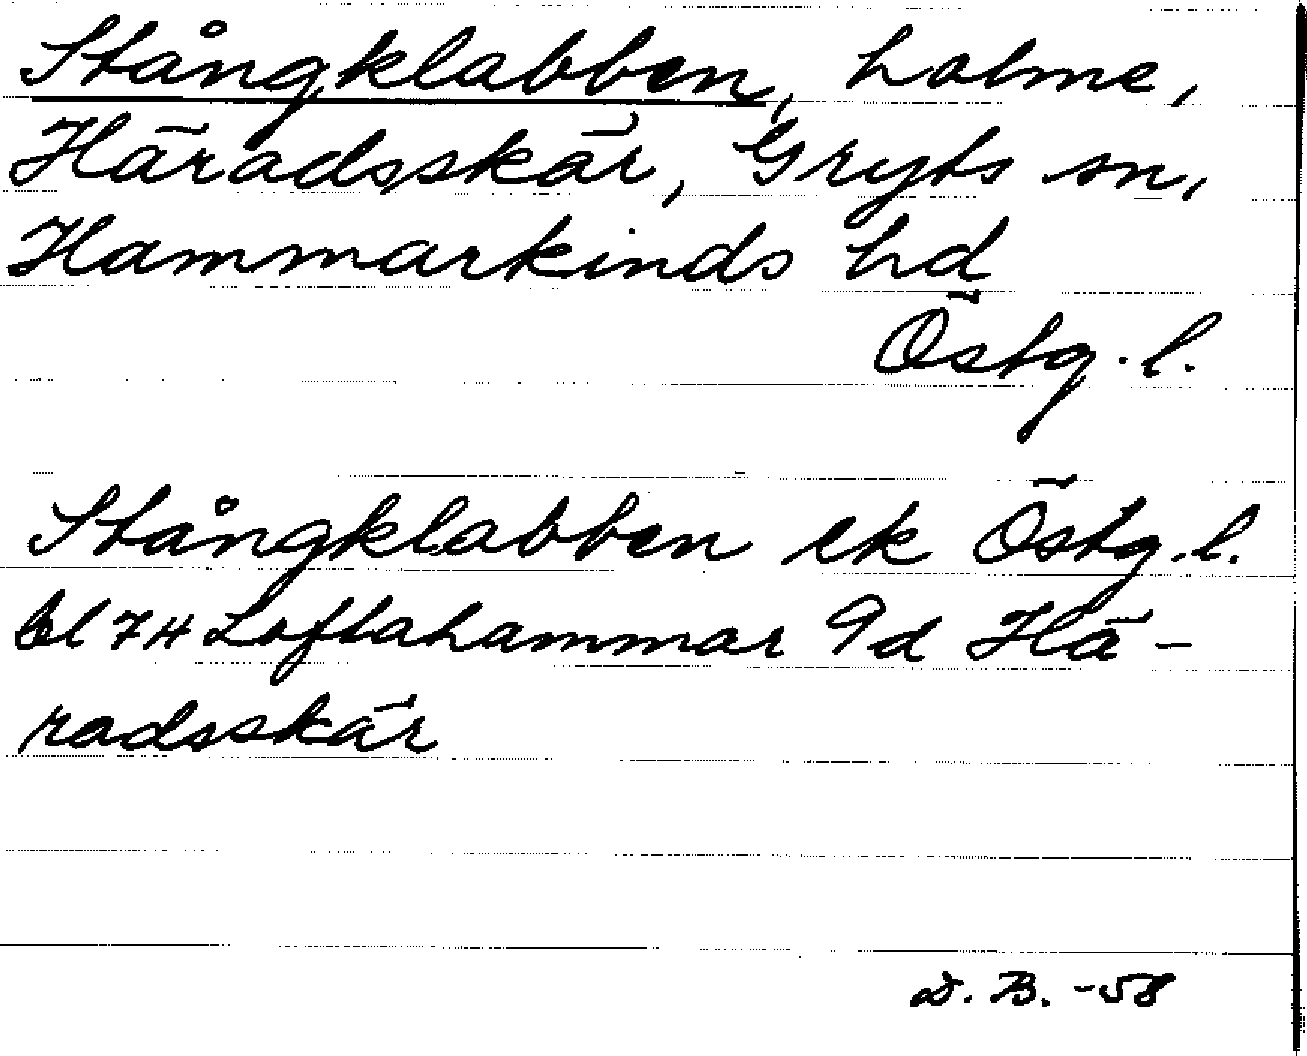 Stångklabben, holme,
Häradsskär, Gryts sn,
Hammarkinds hd
Östg. l.
Stångklabben ek Östg. l.
bl 7H Loftahammar 9d Hä-
radsskär
D. B. -58